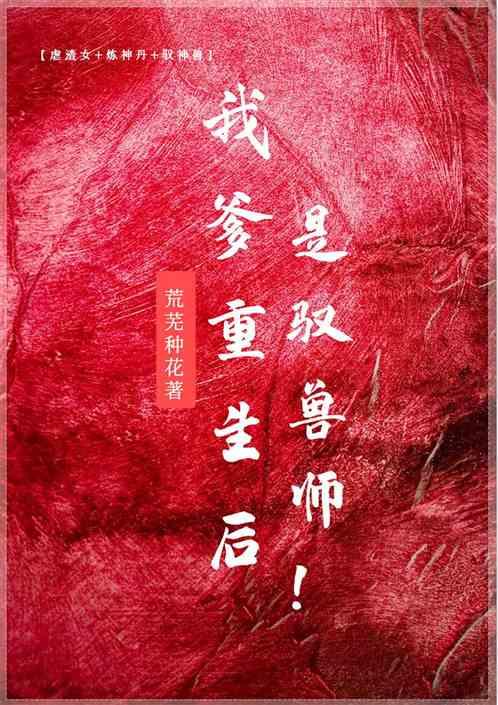 【虐渣女+炼神丹+驭神兽】
我爹重生后
是驭兽师！
荒芜种花著